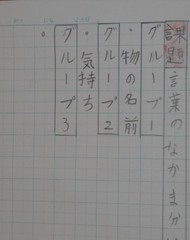 課題 言葉のなかまか
グループ1
・物の名前
グループ2
・気持ち
グループ3